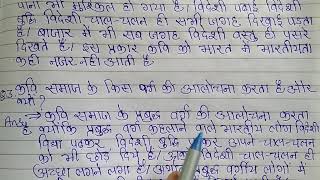 पाना भी मुश्किल हो गया है। विदेशी पढ़ाई विदेशी
बुद्धि विदेशी चाल-चलन ही सभी जगह दिखाई पड़ता
है। बाजार में भी सब जगह विदेशी वस्तु ही पसरे
दिखते हैं। इस प्रकार कवि को भारत में भारतीयता
कही नजर नहीं आती है।
Q3. कवि समाज के किस वर्ग की आलोचना करता है और
क्यों?
Ans:- → कवि समाज के प्रबुद्ध वर्ग की आलोचना करता
है क्योंकि प्रबुद्ध वर्ग कहलाने वाले भारतीय लोग विदेशी
विद्या पढ़कर विदेशी बुद्धि पाकर अपने चाल-चलन
को भी छोड़ दिये हैं। उनको विदेशी चाल-चलन ही
अच्छा लगने लगा है। प्रबुद्ध